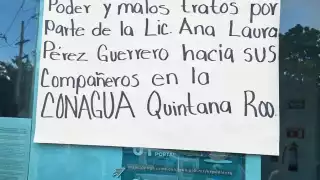 Poder y malos tratos por
parte de la Lic. Ana Laura
Pérez Guerrero hacia sus
Compañeros en la
CONAGUA Quintana Roo.